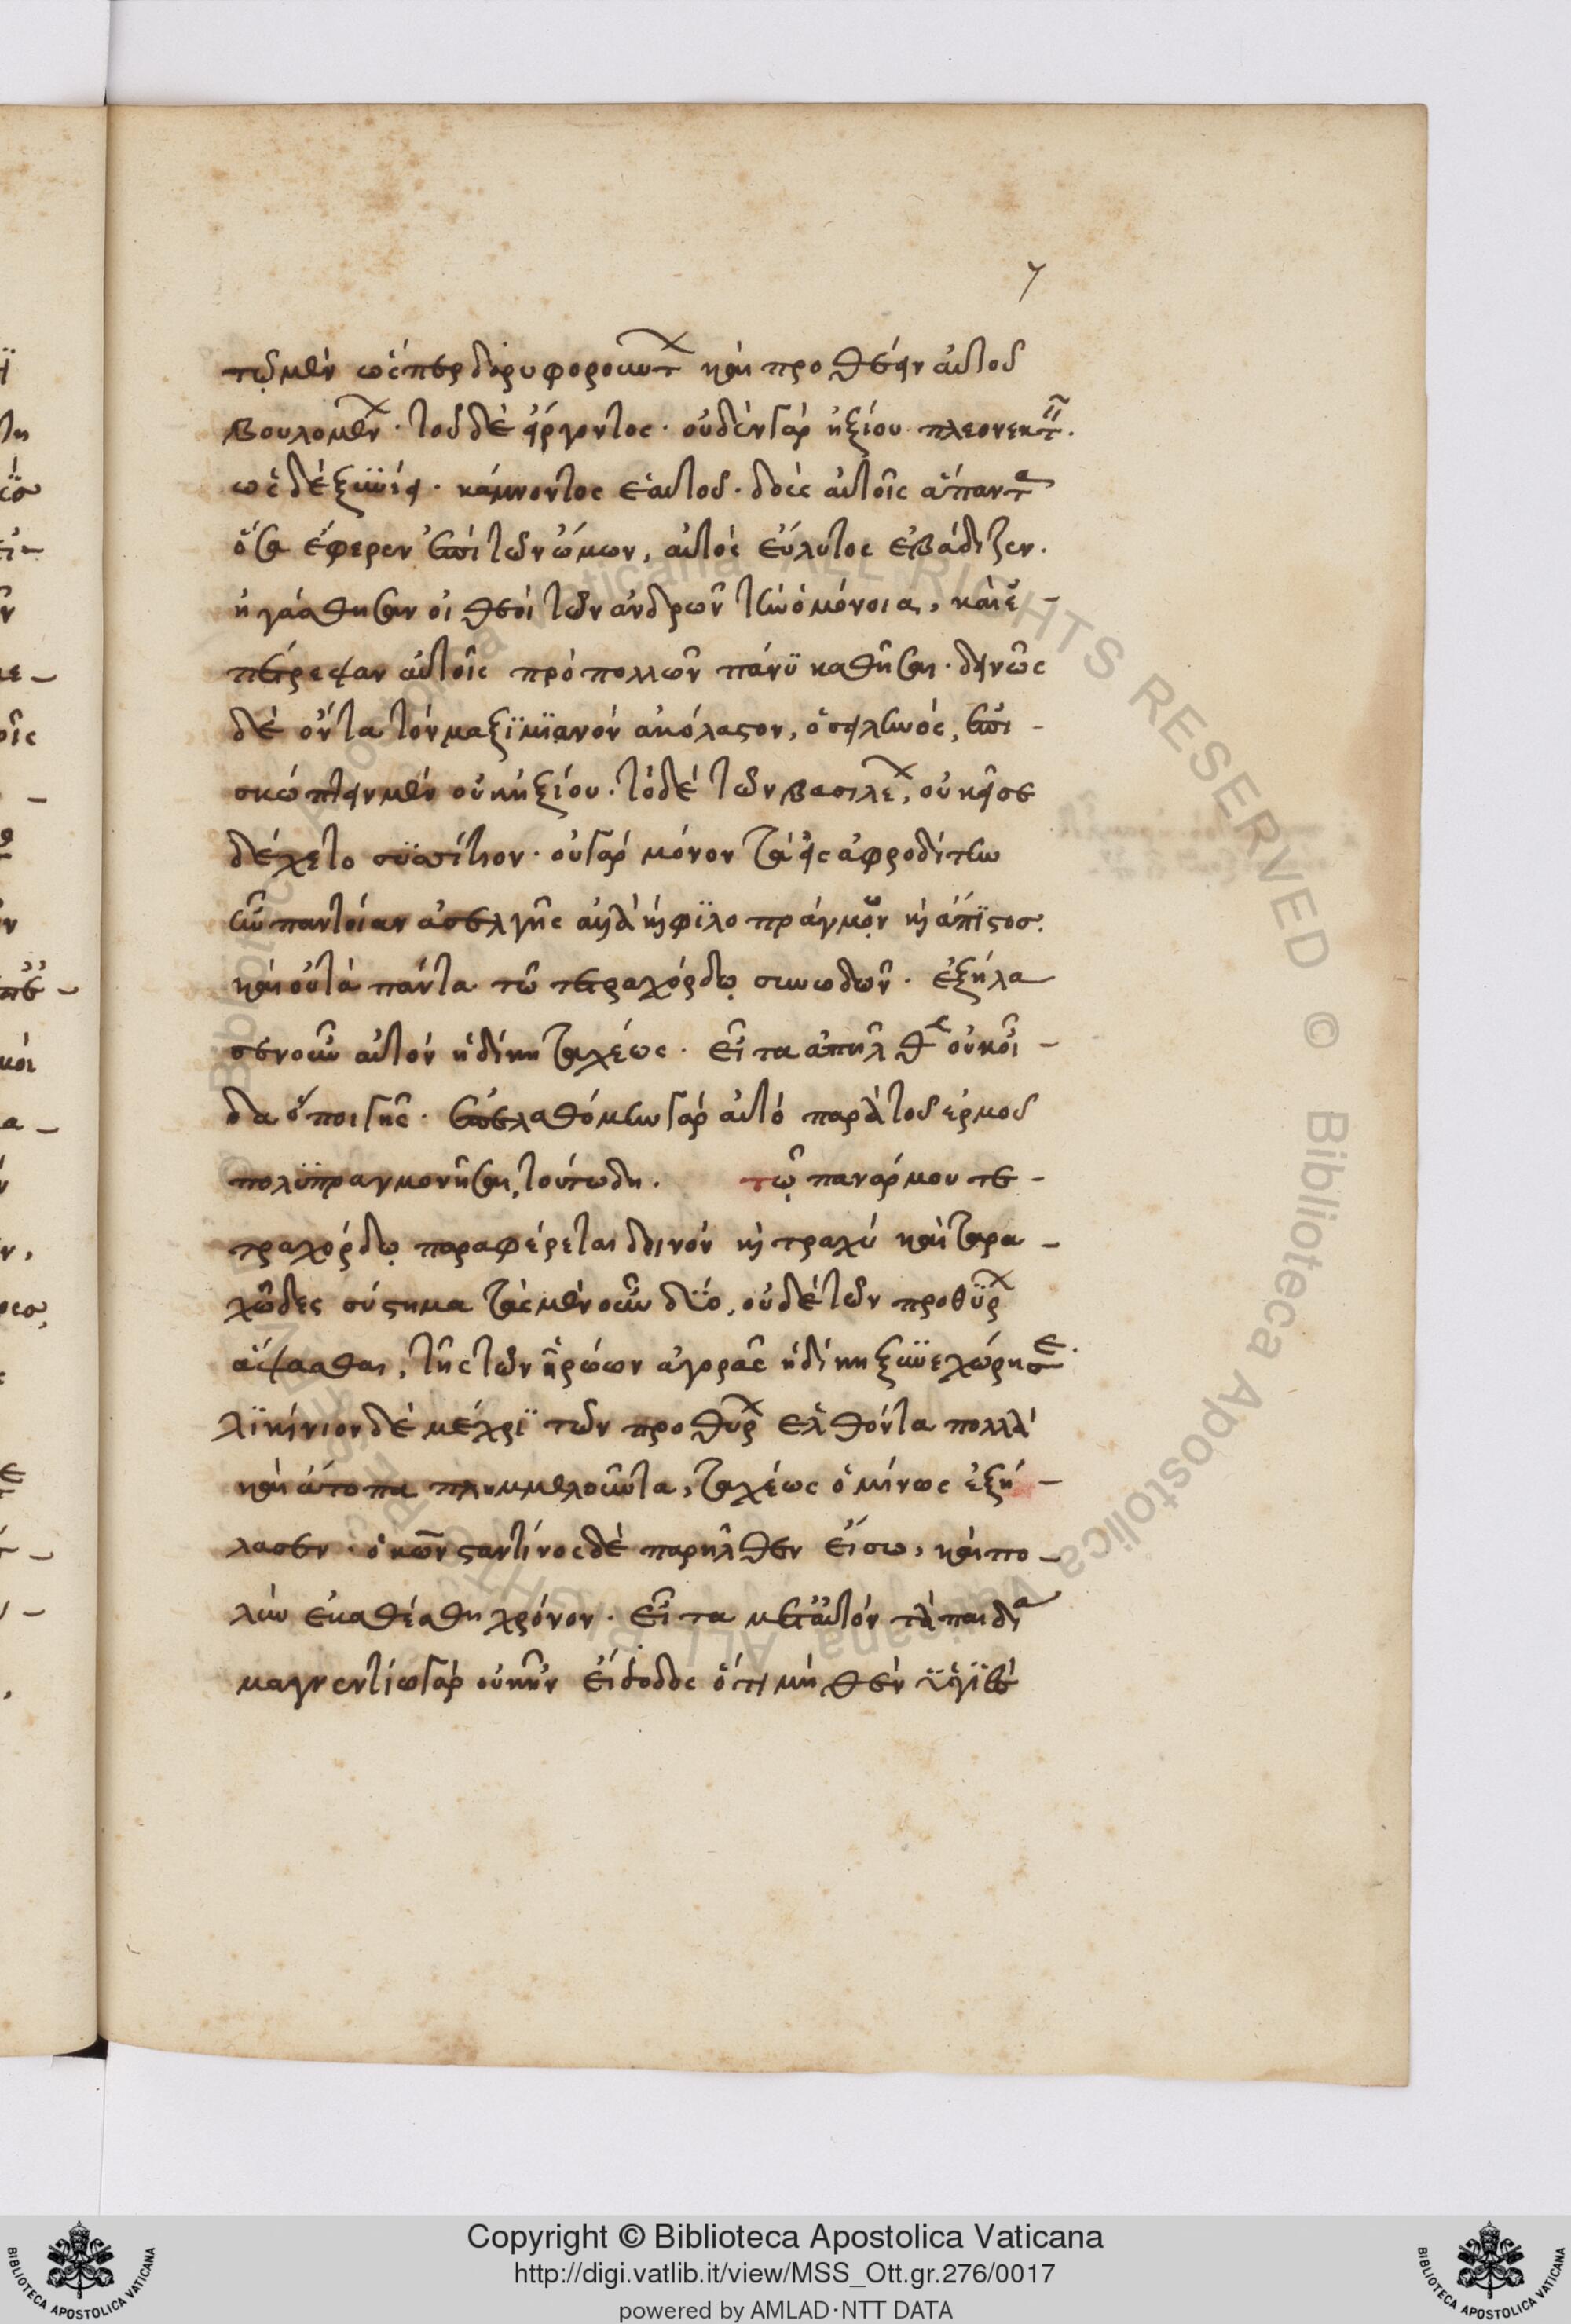 7
τῷ μὲν ὥσπερ δορυφορούντων καὶ προθεῖν αὐτοῦ
βουλομένων· τοῦ δὲ εἴργοντος· οὐδὲν γὰρ ἠξίου πλεονεκτεῖν.
ὡς δὲ ξυνίει κάμνοντος ἑαυτοῦ· δοὺς αὐτοῖς ἅπαντα
ὅσα ἔφερεν ἐπὶ τῶν ὤμων, αὐτὸς εὔλυτος ἐβάδιζεν.
ἠγάσθησαν οἱ θεοὶ τῶν ἀνδρῶν τὴν ὁμόνοιαν, καὶ ἐ-
πέτρεψαν αὐτοῖς πρὸ πολλῶν πάνϋ καθῆσαι· δεινῶς
δὲ ὄντα τὸν μαξϊμϊανὸν ἀκόλαστον, ὁ σειληνὸς, ἐπι-
σκώπτειν μὲν οὐκ ἠξίου· τὸ δὲ τῶν βασιλέων, οὐκ εἰσε
δέχετο συσσίτιον· οὐ γὰρ μόνον τὰ εἰς ἀφροδίτην
ἦν παντοίαν ἀσελγὴς ἀλλὰ καὶ φϊλοπράγμων καὶ ἄπϊστος.
καὶ οὐ τὰ πάντα τῶ τετραχόρδῳ συνωδῶν· ἐξήλα
σεν οὖν αὐτὸν ἡ δίκη ταχέως· εἶτα ἀπῆλθεν οὐκ οἶ-
δα ὅποι γῆς· ἐπελαθόμην γὰρ αὐτὸ παρὰ τοῦ ἑρμοῦ
πολϋπραγμονῆσαι, τούτω δὴ. τῷ παναρμου τε-
τραχόρδῳ παραφέρεται δεινὸν καὶ τραχὺ καὶ ταρα-
χῶδες σύστημα τοὺς μὲν οὖν δύο, οὐδὲ τῶν προθύρων
ἅψασθαι, τῆς τῶν ἡρώων ἀγορᾶς ἡ δίκη ξυνεχώρησε.
λϊκίνιον δὲ μέχρϊ τῶν προθύρων ἐλθόντα πολλὰ
καὶ ἄτοπα πλημμελοῦντα, ταχέως ὁ μίνως ἐξή-
λασεν· ὁ κωνσταντῖνος δὲ παρῆλθεν εἴσω, καὶ πο-
λὺν ἐκαθέσθη χρόνον· εἶτα μετ' αὐτὸν τὰ παιδία
μαγνεντίω γὰρ οὐκ ἦν εἴσοδος ὅτι μηθὲν ὑγιὲς
Copyright © Biblioteca Apostolica Vaticana
http://digi.vatlib.it/view/MSS_Ott.gr.276/0017
powered by AMLAD·NTT DATA